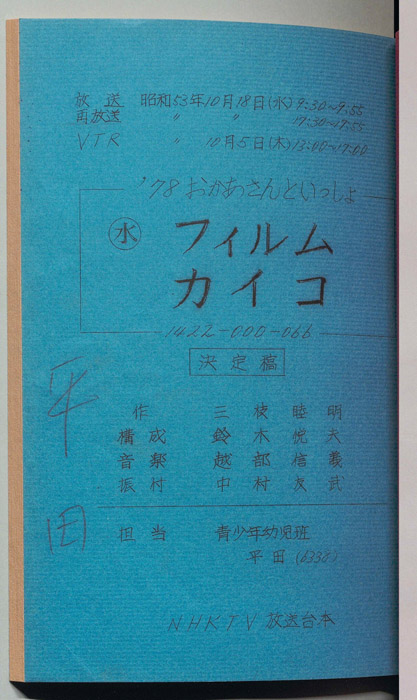 放送 昭和53年10月18日(水) 9:30~9:55
再放送 〃 〃 17:30~17:55
VTR 〃 10月5日(木) 13:00~17:00
'78 おかあさんといっしょ
㊌ フィルム
カイコ
1422-000-066
決定稿
作 三枝睦明
構成 鈴木悦夫
音楽 越部信義
振付 中村友武
担当 青少年幼児班
平田 (6338)
NHKTV 放送台本
平田